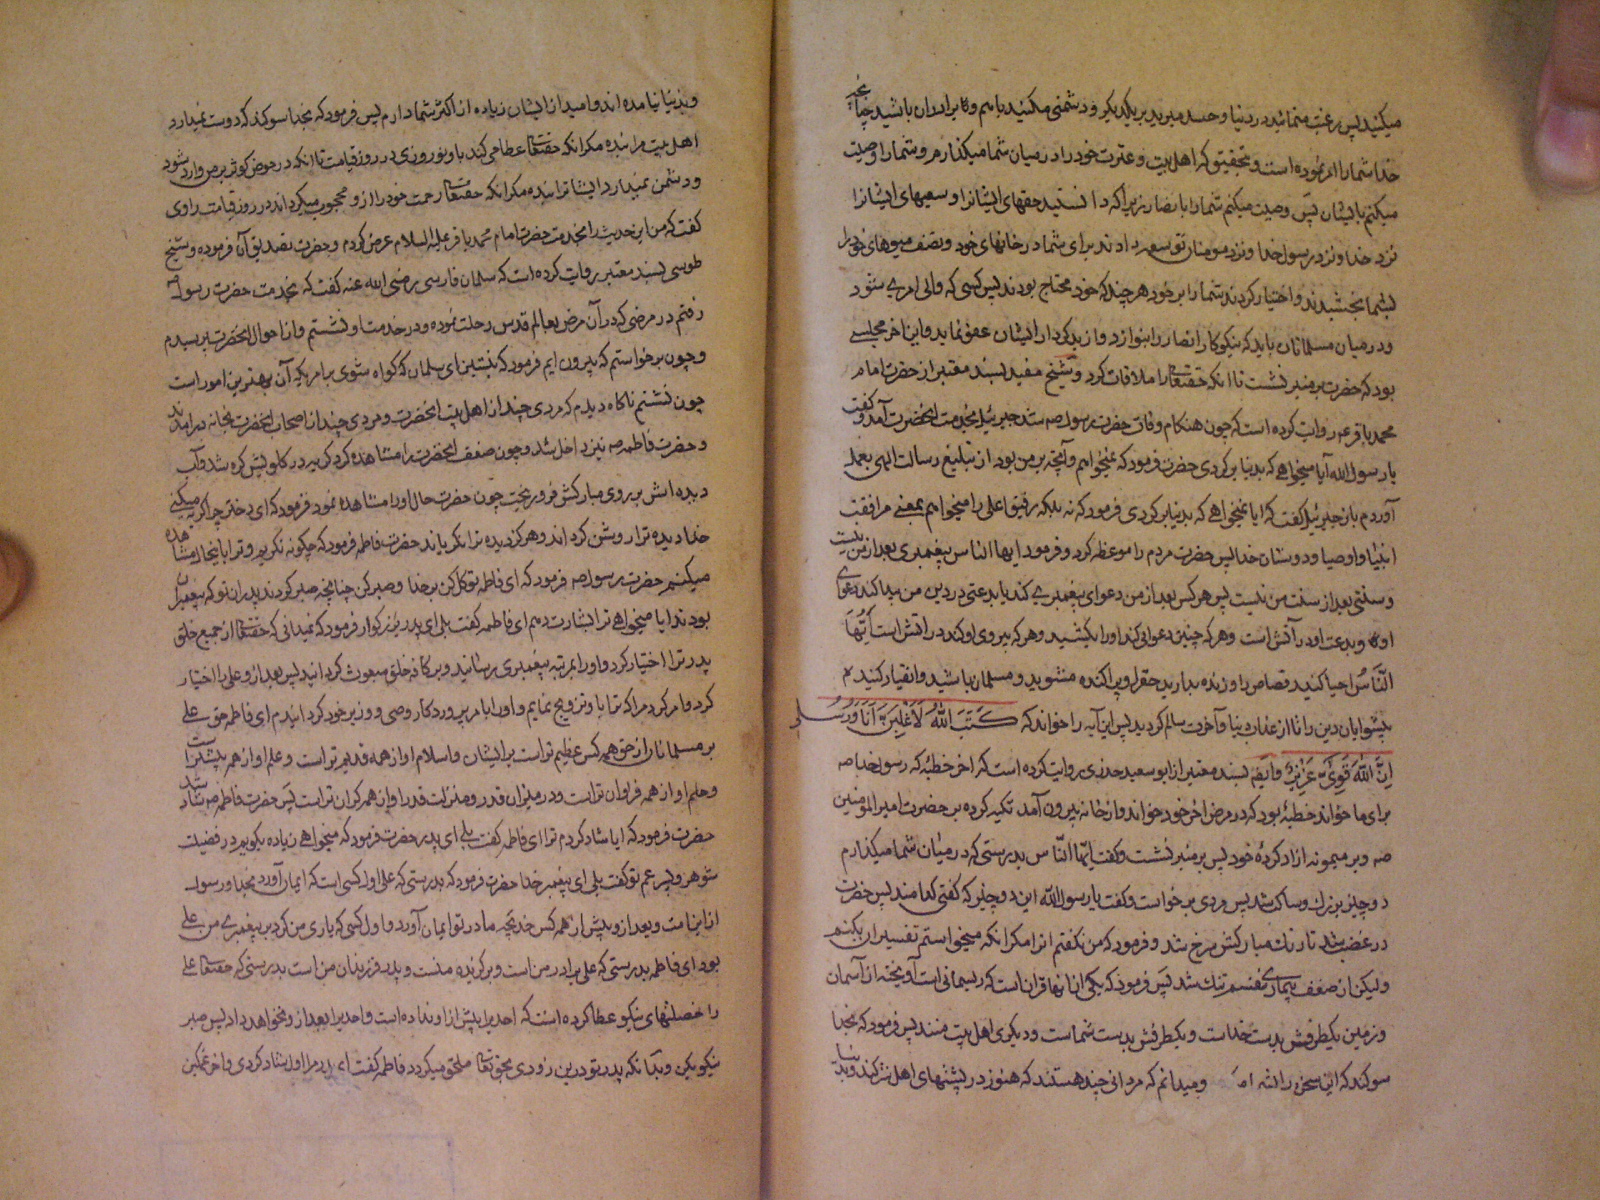 میکنید پس رغبت منمائید در دنیا و حسد مبرید بر یکدیگر و دشمنی مکنید باهم و برادران باشید چنانچه
خدا شما را امر نموده است و بتحقیق که اهل بیت و عترت خود را در میان شما میگذارم و شما را وصیت
میکنم بایشان پس وصیت میکنم شما را بانصار زیرا که دانستید حقهای ایشانرا و سعیهای ایشانرا
نزد خدا و نزد رسول خدا و نزد مومنان توسعه دادند برای شما در خانهای خود و نصف میوهای خود را
بشما بخشیدند و اختیار کردند شما را بر خود هرچند که خود محتاج بودند پس کسی که والی امری شود
در میان مسلمانان باید که نیکوکار انصار را بنوازد و از بدکردار ایشان عفو نماید و این اخر مجلسی
بود که حضرت بر منبر نشست تا انکه حقتعالی را ملاقات کرد و شیخ مفید بسند معتبر از حضرت امام
محمد باقر عم روایت کرده است که چون هنکام وفات حضرت رسول صه شد جبرئیل بخدمت انحضرت آمد و کفت
یا رسول الله آیا میخواهی که بدنیا برکردی حضرت فرمود که نمیخواهم و آنچه بر من بود از تبلیغ رسالت الهی بعمل
آوردم باز جبرئیل کفت که ایا نمیخواهی که بدنیا برکردی فرمود که نه بلکه رفیق اعلی را میخواهم یعنی مرافقت
انبیا و اوصیا و دوستان خدا پس حضرت مردم را موعظه کرد و فرمود ایها الناس پیغمبری بعد از من نیست
و سنتی بعد از سنت من نیست پس هر کس بعد از من دعوای پیغمبری کند یا بدعتی در دین من پیدا کند دعوای
او و بدعت او در آتش است و هر که چنین دعوائی کند او را بکشید و هر که پیروی او کند در اتش است اَیُّهَا
النَّاسُ احیا کنید قصاص را و زنده بدارید حق را و پراکنده مشوید و مسلمان باشید و انقیاد کنید
پیشوایان دین را تا از عذاب دنیا و آخرت سالم کردید پس این آیه را خواند که كَتَبَ اللّٰهُ لَاَغْلِبَنَّ اَنَا وَرُسُلِی
اِنَّ اللّٰهَ قَوِیٌّ عَزِیزٌ و ایضا بسند معتبر از ابو سعید خدری روایت کرده است که اخر خطبهٔ که رسول خدا صه
برای ما خواند خطبهٔ بود که در مرض اخر خود خواند و از خانه بیرون آمد تکیه کرده بر حضرت امیر المؤمنین
صه و بر میمونه ازاد کردهٔ خود پس بر منبر نشست و کفت ایّها النّاس بدرستی که در میان شما میکذارم
دو چیز بزرک و ساکت شد پس مردی برخواست و کفت یا رسول الله این دو چیز که کفتی کدامند پس حضرت
در غضب شد تا رنک مبارکش سرخ شد و فرمود که من نکفتم انرا مکر انکه میخواستم تفسیر ان بکنم
ولیکن از ضعف بیماری نفسم تنک شد پس فرمود که یکی از انها قران است که ریسمانی است آویخته از آسمان
و زمین یکطرفش بدست خداست و یکطرفش بدست شماست و دیکری اهل بیت منند پس فرمود که بخدا
سوکند که این سخن را بشما و میدانم که مردانی چند هستند که هنوز در پشتهای اهل شرکند و بدنیا
و بدنیا نیامده اند و امید از ایشان زیاده از اکثر شما دارم پس فرمود که بخدا سوکند که دوست نمیدارد
اهل بیت مرا بنده مکر انکه حقتعالی عطا می کند باو نوری در روز قیامت تا انکه در حوض کوثر بر من وارد شود
و دشمن نمیدارد ایشانرا بنده مکر انکه حقتعالی رحمت خود را از و محجوب میکرداند در روز قیامت راوی
کفت که من این حدیث را بخدمت حضرت امام محمد باقر علیه السلام عرض کردم و حضرت تصدیق آن فرموده و شیخ
طوسی بسند معتبر روایت کرده است که سلمان فارسی رضی الله عنه کفت که بخدمت حضرت رسول
رفتم در مرضی که در آن مرض بعالم قدس رحلت نموده و در خدمت او نشستم و از احوال انحضرت پرسیدم
و چون برخواستم که بیرون ایم فرمود که بنشین ای سلمان که کواه شوی بر امریکه آن بهترین امور است
چون نشستم ناکاه دیدم که مردی چند از اهل بیت انحضرت و مردی چند از اصحاب انحضرت بخانه درامدند
و حضرت فاطمه صه نیز داخل شد و چون ضعف انحضرت را مشاهده کرد کریه در کلویش کره شد و آب
دیده اش بر روی مبارکش فرو ریخت چون حضرت حال او را مشاهده نمود فرمود که ای دختر چرا کریه میکنی
خدا دیده ترا روشن کرداند و هرکز دیده ترا نکریاند حضرت فاطمه فرمود که چکونه نکریم و ترا باینحال مشاهده
میکنم حضرت رسول صه فرمود که ای فاطمه توکل کن بر خدا و صبر کن چنانچه صبر کردند پدران تو که پیغمبران
بودند ایا میخواهی ترا بشارت دهم ای فاطمه کفت بلی ای پدر بزرکوار فرمود که نمیدانی که حقتعالی از جمیع خلق
پدر ترا اختیار کرد و او را بمرتبه پیغمبری رسانید و بر کافه خلق مبعوث کردانید پس بعد از و علی را اختیار
کرد و امر کرد مرا که ترا باو تزویج نمایم و او را بامر پروردکار وصی و وزیر خود کردانیدم ای فاطمه حق علی
بر مسلمانان از حق همه کس عظیم تر است بر ایشان و اسلام او از همه قدیم تر است و علم او از همه بیشتر است
و حلم او از همه فراوان تر است و در میزان قدر و منزلت قدر او از همه کران تر است پس حضرت فاطمه صه شاد شد
حضرت فرمود که ایا شاد کردم ترا ای فاطمه کفت بلی ای پدر حضرت فرمود که میخواهی زیاده بکویم در فضیلت
شوهر و پسر عم تو کفت بلی ای پیغمبر خدا حضرت فرمود که بدرستی که علی اول کسی است که ایمان آورد بخدا و رسول
از این امت و بعد از و پیش از همه کس خدیجه مادر تو ایمان آورد و اول کسی که یاری من کرد بر پیغمبری من علی
بود ای فاطمه بدرستی که علی برادر من است و برکزیده منست و پدر فرزندان من است بدرستی که حقتعالی علی
را خصلتهای نیکو عطا کرده است که احدی را پیش از او نداده است و احدی را بعد از و نخواهد داد پس صبر
نیکو بکن و بدانکه پدر تو درین زودی بحق تعالی ملحق میکردد فاطمه کفت ای پدر مرا اول شاد کردی و اخر غمکین